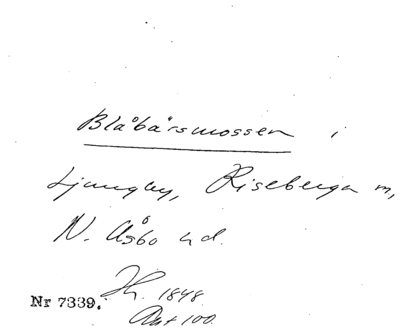 Blåbärsmossen i
Ljungby, Riseberga m,
N. Åsbo hd.
1848.
Nr 7339.
Akt 100.